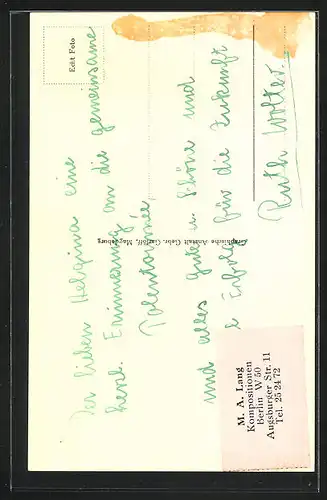 Der lieben Helgina eine
herzl. Erinnerung an die gemeinsame
Polentournée,
und alles Gute u. Schöne und
Erfolg für die Zukunft
Ruth Wolter.
Echt Foto
Graphische Anstalt Gebr. Garloff, Magdeburg
M. A. Lang
Kompositionen
Berlin W 50
Augsburger Str. 11
Tel. 25 24 72